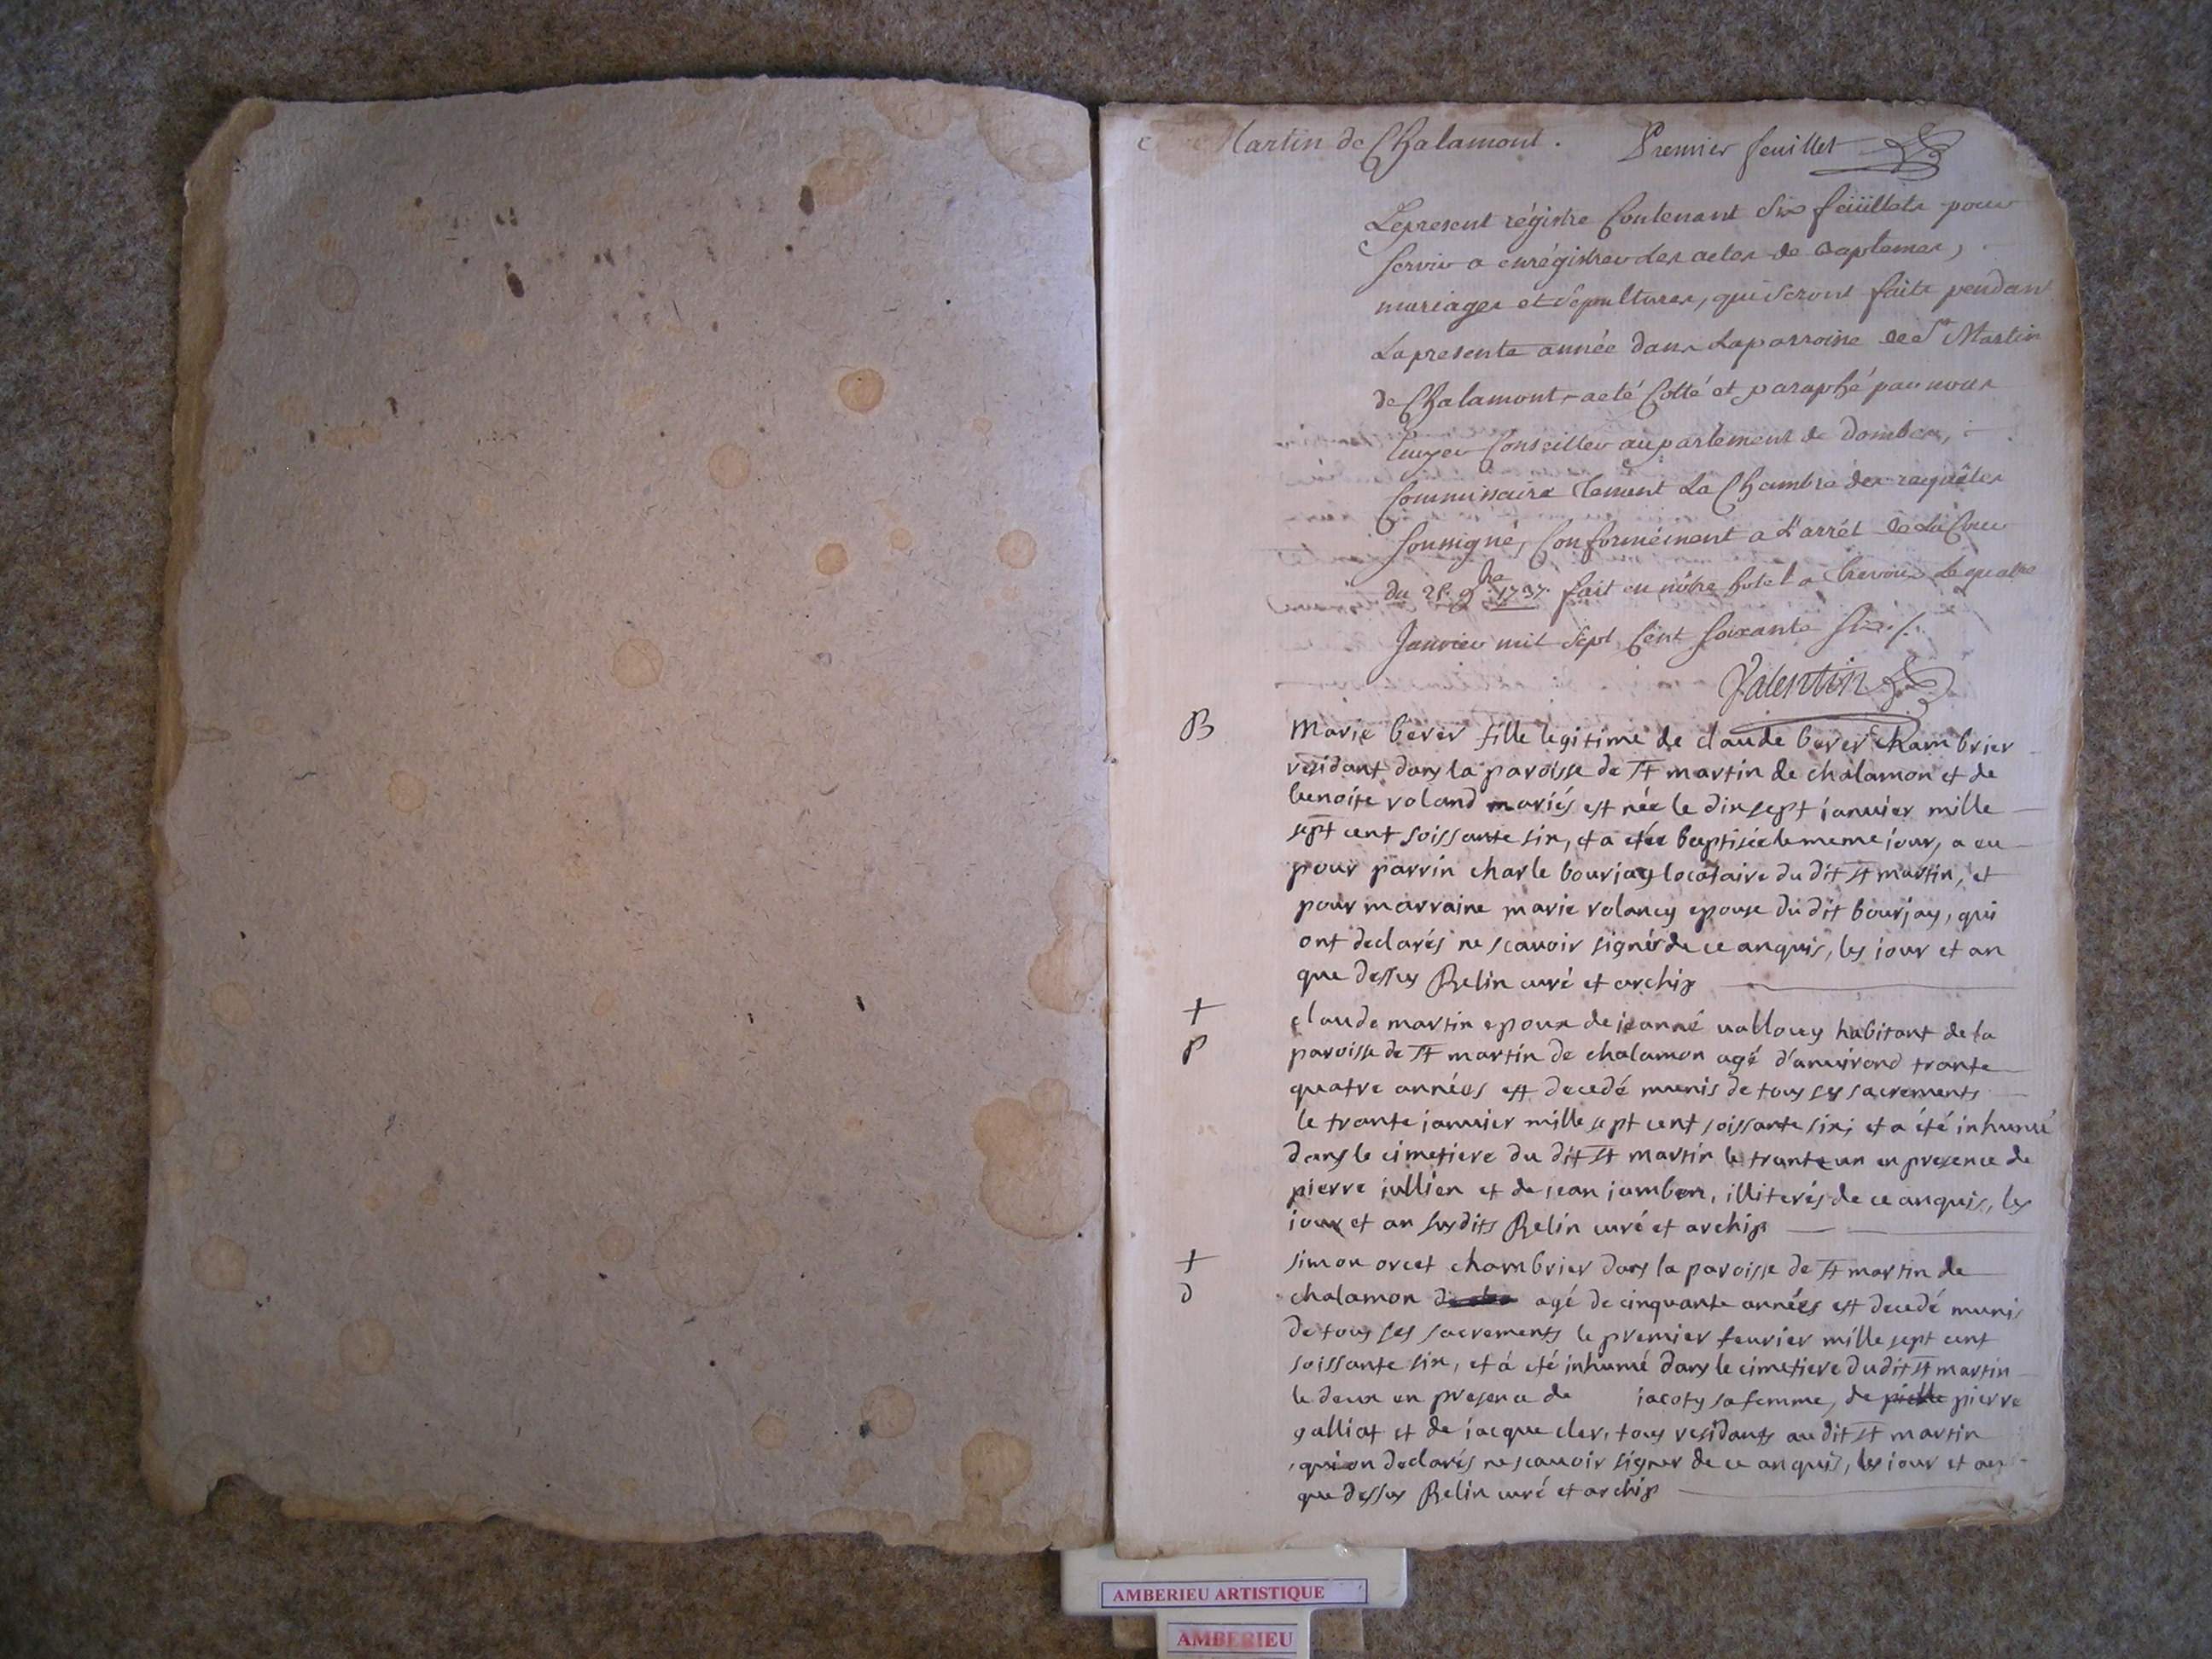 Martin de Chalamont. Premier feuillet
Le present régistre Contenant Six feüillets pour
servir a enrégistrer les actes de Baptemes,
mariages et sépultures, qui seront faits pendant
La presente année dans La parroisse de St Martin
de Chalamont, a eté Cotté et paraphé par nous
Ecuyer Conseiller au parlement de Dombes,
Commissaire tenant La Chambre des requêtes
soussigné, Conformément a L'arrét de La Cour
du 9bre 1737. fait en nôtre hotel a Trevoux Le quatre
Janvier mil Sept Cent Soixante Six ./.
Valentin
B
Marie berer fille legitime de claude berer chambrier
residant dans la paroisse de St martin de chalamon et de
benoite roland mariés est née le dix sept ianuier mille
sept cent soissante six, et a étée baptisée le meme iour, a eu
pour parrin charle bourjay locataire du dit St martin, et
pour marraine marie epouse du dit bourjay, qui
ont declarés ne scauoir signer de ce anquis, les iour et an
que dessus Relin curé et archip
+
claude martin epoux de ieanne habitant de la
p
paroisse de St martin de chalamon agé d'anuirond trante
quatre années est decedé munis de tous ses sacrements
le trante ianuier mille sept cent soissante six; et a été inhumé
dans le cimetiere du dit St martin le trante un en presence de
pierre iullien et de iean iambon, illiterés de ce anquis, les
iour et an susdits Relin curé et archip
+
simon orcet chambrier dans la paroisse de St martin de
d
chalamon agé de cinquante années est decedé munis
de tous ses sacrements le premier feurier mille sept cent
soissante six, et á été inhumé dans le cimetiere du dit St martin
le deux en presence de iacoty sa femme, de pierre
galliat et de iacque cler, tous residants au dit St martin
qui on declarés ne scauoir signer de ce anquis, les iour et an
que dessus Relin curé et archip
AMBERIEU ARTISTIQUE
AMBERIEU